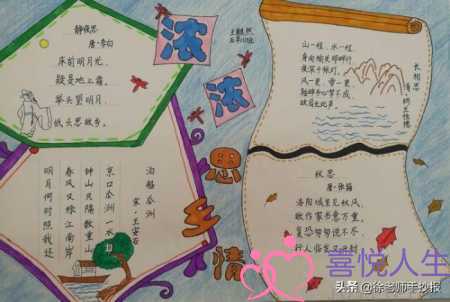 静夜思
唐·李白
床前明月光,
疑是地上霜。
举头望明月,
低头思故乡。
浓
浓
思
乡
情
泊船瓜洲
宋·王安石
京口瓜洲一水间
钟山只隔数重山
春风又绿江南岸
明月何时照我还
长相思
清·纳兰性德
山一程,水一程,
身向榆关那畔行,
夜深千帐灯。
风一更,雪一更,
聒碎乡心梦不成,
故园无此声。
秋思
唐·张籍
洛阳城里见秋风,
欲作家书意万重。
复恐匆匆说不尽,
行人临发又开封
喜悦人生
头条 @徐老师手抄报